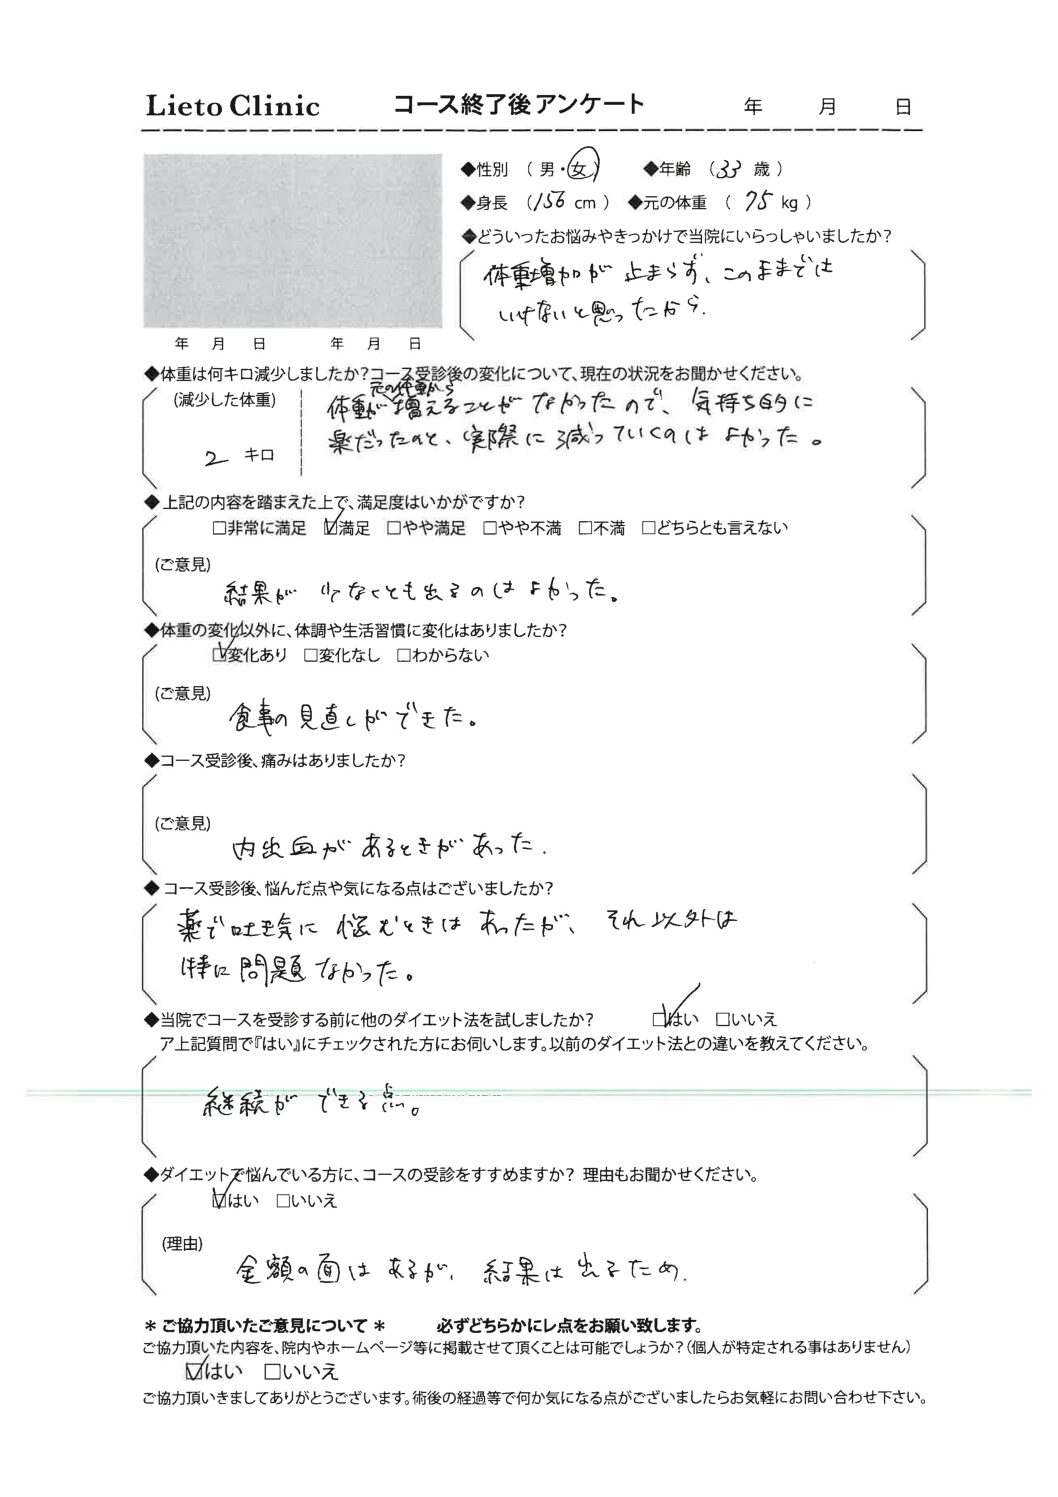 Lieto Clinic コース終了後アンケート 年 月 日
◆性別 （ 男・女 ） ◆年齢 （33 歳 ）
◆身長 （156 cm ） ◆元の体重 （ 75 kg ）
◆どういったお悩みやきっかけで当院にいらっしゃいましたか?
体重増加が止まらず、このままでは
いけないと思ったから.
年 月 日 年 月 日
◆体重は何キロ減少しましたか?コース受診後の変化について、現在の状況をお聞かせください。
(減少した体重)
元の体重から
体重が増えることがなかったので、気持ち的に
楽だったのと、実際に減っていくのはよかった。
2 キロ
◆ 上記の内容を踏まえた上で、満足度はいかがですか?
□非常に満足 ☑満足 □やや満足 □やや不満 □不満 □どちらとも言えない
(ご意見)
結果が少なくとも出るのはよかった。
◆体重の変化以外に、体調や生活習慣に変化はありましたか?
☑変化あり □変化なし □わからない
(ご意見)
食事の見直しができた。
◆コース受診後、痛みはありましたか?
(ご意見)
内出血があるときがあった.
◆ コース受診後、悩んだ点や気になる点はございましたか?
薬で吐き気に悩むときはあったが、それ以外は
特に問題なかった。
◆当院でコースを受診する前に他のダイエット法を試しましたか? ☑はい □いいえ
ア上記質問で『はい』にチェックされた方にお伺いします。以前のダイエット法との違いを教えてください。
継続ができる点。
◆ダイエットで悩んでいる方に、コースの受診をすすめますか? 理由もお聞かせください。
☑はい □いいえ
(理由)
金額の面はあるが、結果は出るため.
＊ ご協力頂いたご意見について ＊ 必ずどちらかにレ点をお願い致します。
ご協力頂いた内容を、院内やホームページ等に掲載させて頂くことは可能でしょうか?（個人が特定される事はありません）
☑はい □いいえ
ご協力頂きましてありがとうございます。術後の経過等で何か気になる点がございましたらお気軽にお問い合わせ下さい。